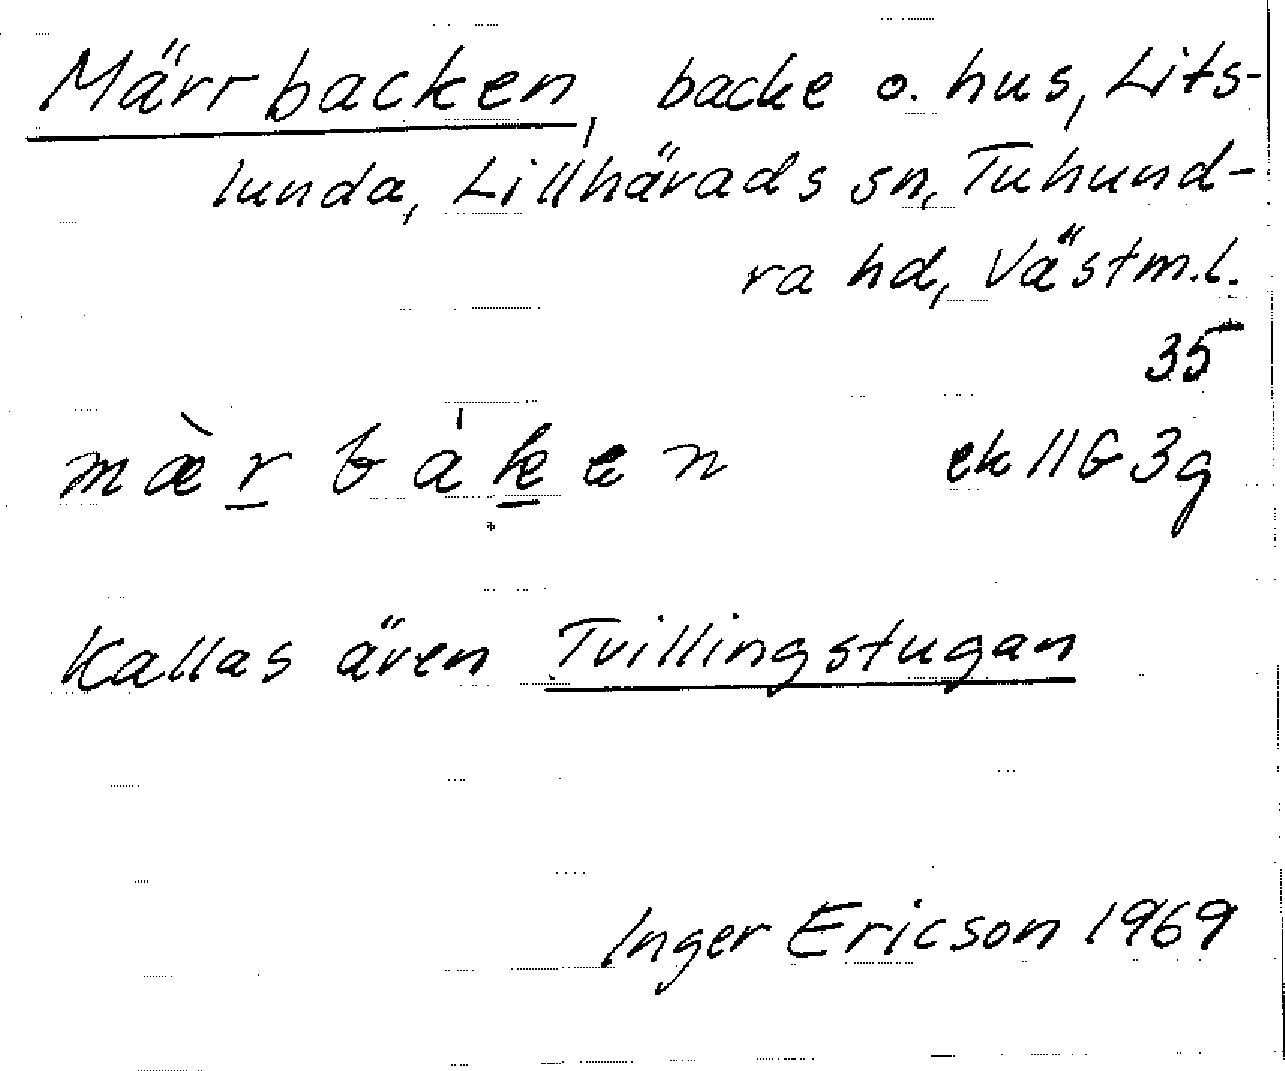 Märrbacken, backe o. hus, Lits-
lunda, Lillhärads sn, Tuhund-
ra hd, Västm.l.
35
mæ̀rbáken ek 11G 3g
Kallas även Tvillingstugan
Inger Ericson 1969